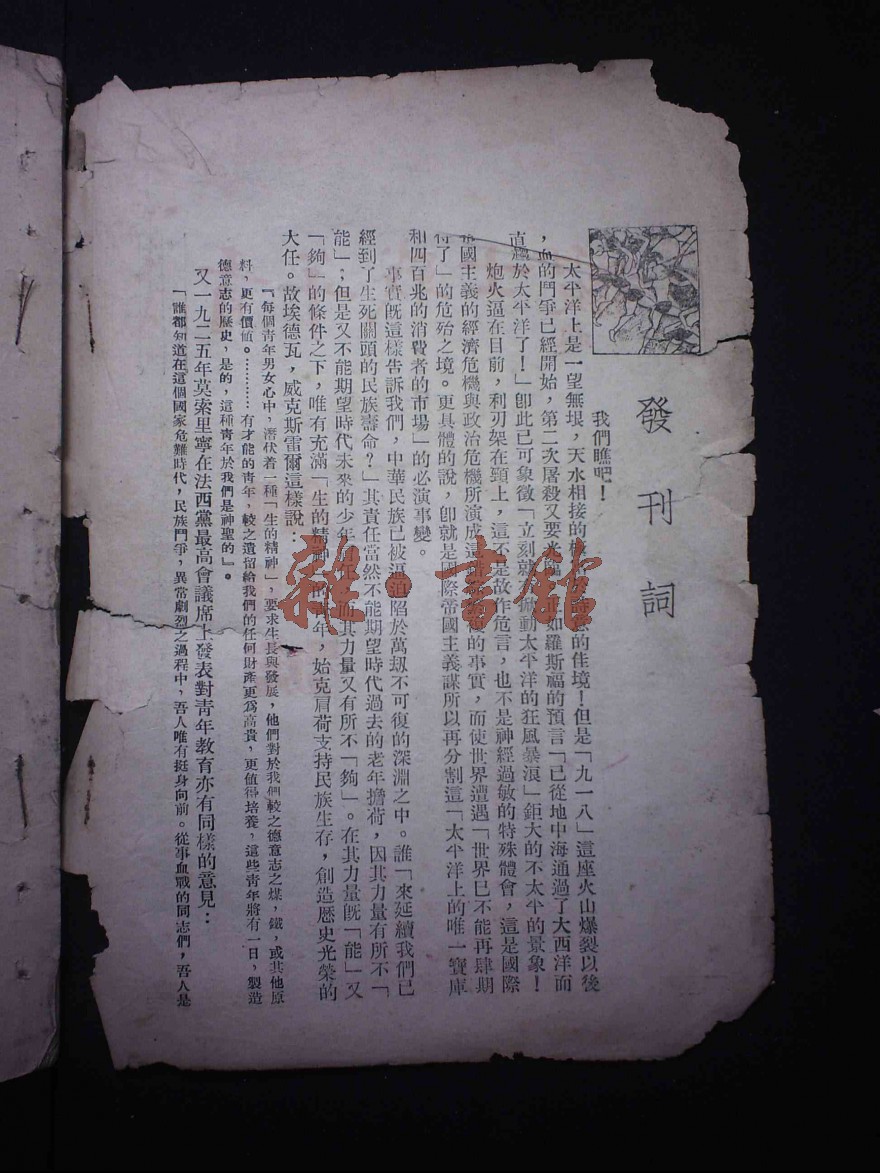 發刊詞
我們瞧吧！
太平洋上是一望無垠，天水相接的 的佳境！但是「九一八」這座火山爆裂以後
，血的鬥爭已經開始，第二次屠殺又要 如羅斯福的預言「已從地中海通過了大西洋而
直趨於太平洋了！」卽此已可象徵「立刻就 掀動太平洋的狂風暴浪」鉅大的不太平的景象！
炮火逼在目前，利刃架在頸上，這不是故作危言，也不是神經過敏的特殊體會，這是國際
帝國主義的經濟危機與政治危機所演成這 的事實，而使世界遭遇「世界已不能再肆期
待了」的危殆之境。更具體的說，卽就是國際帝國主義謀所以再分割這「太平洋上的唯一寶庫
和四百兆的消費者的市場」的必演事變。
事實旣這樣告訴我們，中華民族已被逼迫陷於萬刼不可復的深淵之中。誰「來延續我們已
經到了生死關頭的民族壽命？」其責任當然不能期望時代過去的老年擔荷，因其力量有所不「
能」；但是又不能期望時代未來的少年 而其力量又有所不「夠」。在其力量旣「能」又
「夠」的條件之下，唯有充滿「生的精神」的青年，始克肩荷支持民族生存，創造歷史光榮的
大任。故埃德瓦，威克斯雷爾這樣說：
『每個青年男女心中，潛伏着一種「生的精神」，要求生長與發展，他們對於我們較之德意志之煤，鐵，或其他原
料，更有價値。………… 有才能的青年，較之遺留給我們的任何財產更爲高貴，更值得培養，這些青年將有一日，製造
德意志的歷史，是的，這種青年於我們是神聖的』。
又一九二五年莫索里寧在法西黨最高會議席上發表對青年敎育亦有同樣的意見：
「誰都知道在這個國家危難時代，民族鬥爭，異常劇烈之過程中，吾人唯有挺身向前。從事血戰的同志們，吾人是
雜·書館